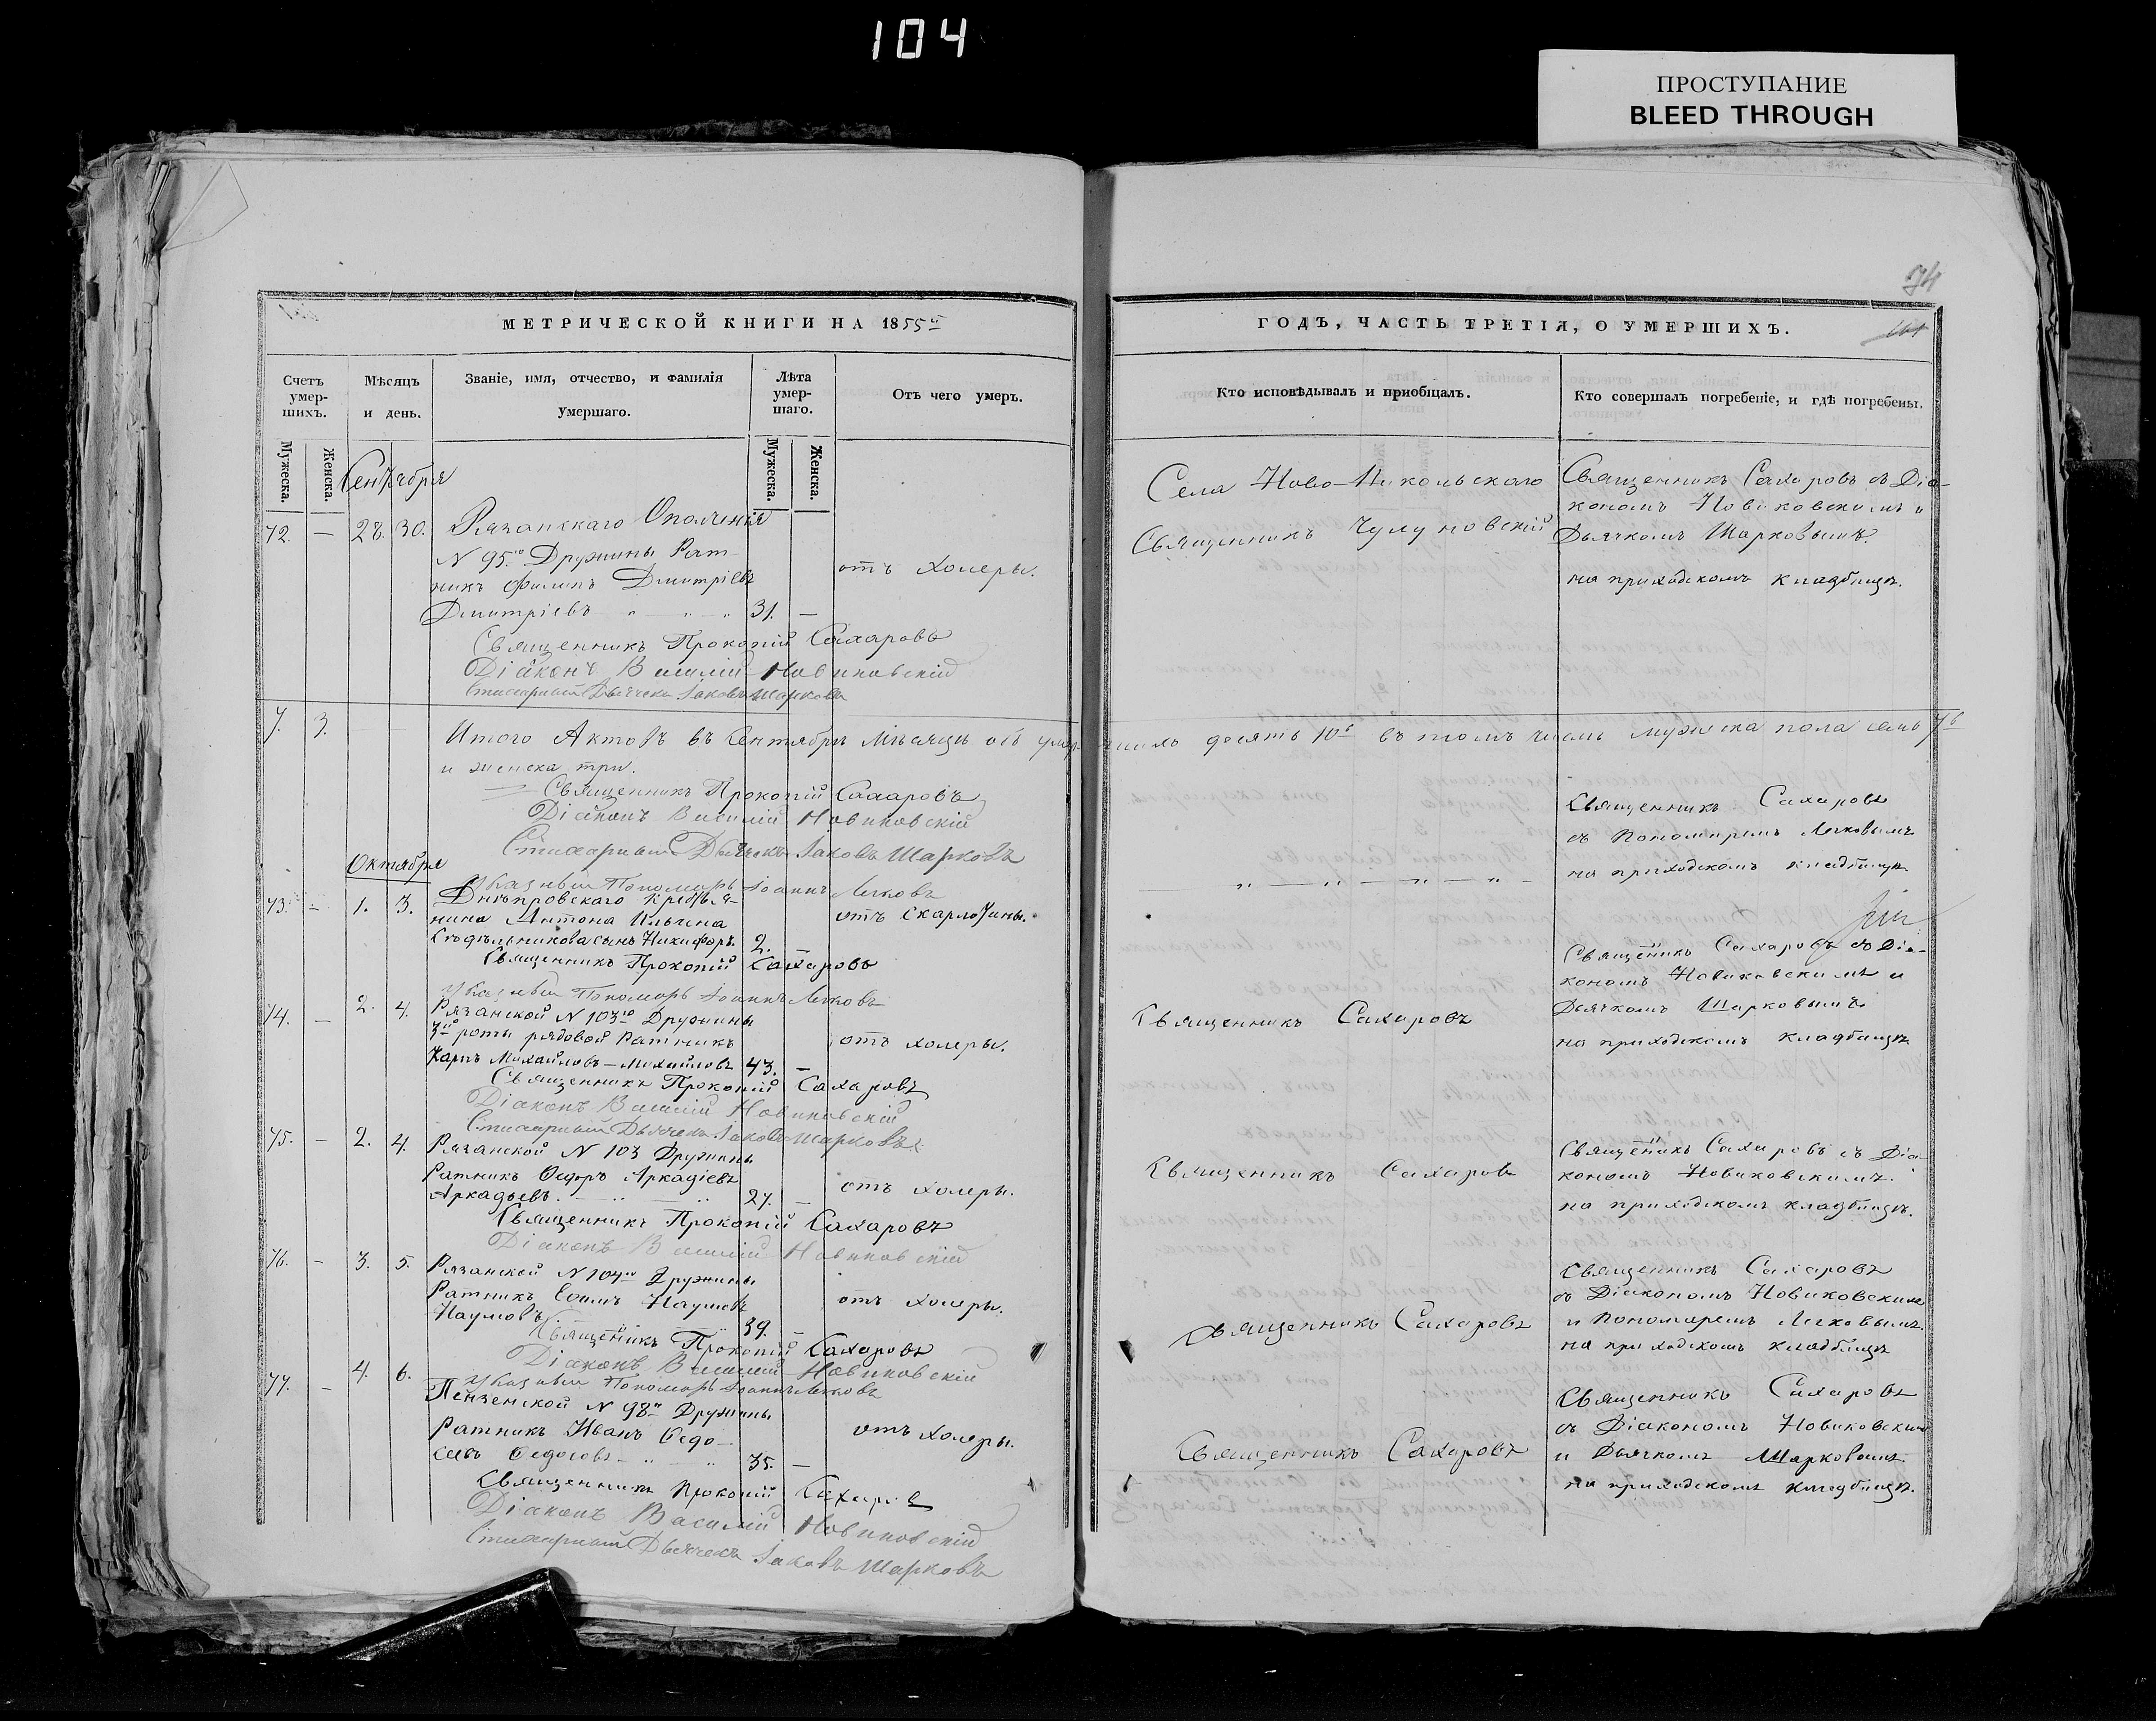 104
ПРОСТУПАНИЕ
BLEED THROUGH
МЕТРИЧЕСКОЙ КНИГИ НА 1855й
Счетъ умерших.
Мѣсяцъ и день.
Званіе, имя, отчество, и фамилія умершаго.
Лѣта умершаго.
Отъ чего умеръ.
Мужеска.
Женска.
Мужеска.
Женска.
Сентября
72. — 28. 30. Рязанскаго Ополченія
№ 95.го Дружины Рат-
никъ Филипъ Дмитріевъ
отъ холеры.
Дмитріевъ " — " " 31. —
Священникъ Прокопій Сахаровъ
Діаконъ Василій Новиковскій
Стихарный Дьячекъ Іаковъ Шарковъ
7. 3. Итого Актовъ въ Сентябрѣ мѣсяцѣ объ умер-
и женска три.
Священникъ Прокопій Сахаровъ
Діаконъ Василій Новиковскій
Стихарный Дьячекъ Іаковъ Шарковъ
Октября
Указный Пономарь Іоаннъ
73. — 1. 3. Днѣпровскаго
нина Антона Ильина
отъ Скарлотины.
сынъ Никифоръ. 2. —
Священникъ Прокопій Сахаровъ
Указный Пономарь Іоаннъ
74. — 2. 4. Рязанской № 103го Дружины
3й роты рядовой Ратникъ
отъ холеры.
Карпъ Михайловъ — Михайловъ 43. —
Священникъ Прокопій Сахаровъ
Діаконъ Василій Новиковскій
Стихарный Дьячекъ Іаковъ Шарковъ
75. — 2. 4. Рязанской № 103 Дружины
Ратникъ Ѳедоръ Аркадіевъ
отъ холеры.
Аркадьевъ. — " " 27. —
Священникъ Прокопій Сахаровъ
Діаконъ Василій Новиковскій
76. — 3. 5. Рязанской № 104го Дружины
Ратникъ Ефимъ Наумовъ
отъ холеры.
Наумовъ. 39. —
Священникъ Прокопій Сахаровъ
Діаконъ Василій Новиковскій
Указный Пономарь Іоаннъ
77. — 4. 6. Пензенской № 98й Дружины
Ратникъ Иванъ Ѳедо-
отъ холеры.
35. —
Священникъ Прокопій Сахаровъ
Діаконъ Василій Новиковскій
Стихарный Дьячекъ Іаковъ Шарковъ
74
ГОДЪ, ЧАСТЬ ТРЕТІЯ, О УМЕРШИХЪ.
Кто исповѣдывалъ и пріобщалъ.
Кто совершалъ погребеніе, и гдѣ погребены.
Села Ново-Никольскаго
Священникъ
Священникъ Сахаровъ съ Діа-
кономъ Новиковскимъ и
Дьячкомъ Шарковымъ.
на приходскомъ кладбищѣ.
шихъ десять 10ь въ томъ числѣ мужеска пола семь 7ь
Священникъ Сахаровъ
съ Пономаремъ
на приходскомъ кладбищѣ
" — " — " — " —
Священникъ Сахаровъ съ Діа-
кономъ Новиковскимъ и
Дьячкомъ Шарковымъ
на приходскомъ кладбищѣ
Священникъ Сахаровъ
Священникъ Сахаровъ съ Діа-
кономъ Новиковскимъ.
на приходскомъ кладбищѣ.
Священникъ Сахаровъ
Священникъ Сахаровъ
съ Діакономъ Новиковскимъ
и Пономаремъ
на приходскомъ кладбищѣ
Священникъ Сахаровъ
Священникъ Сахаровъ
съ Діакономъ Новиковскимъ
и Дьячкомъ Шарковымъ.
на приходскомъ кладбищѣ.
Священникъ Сахаровъ